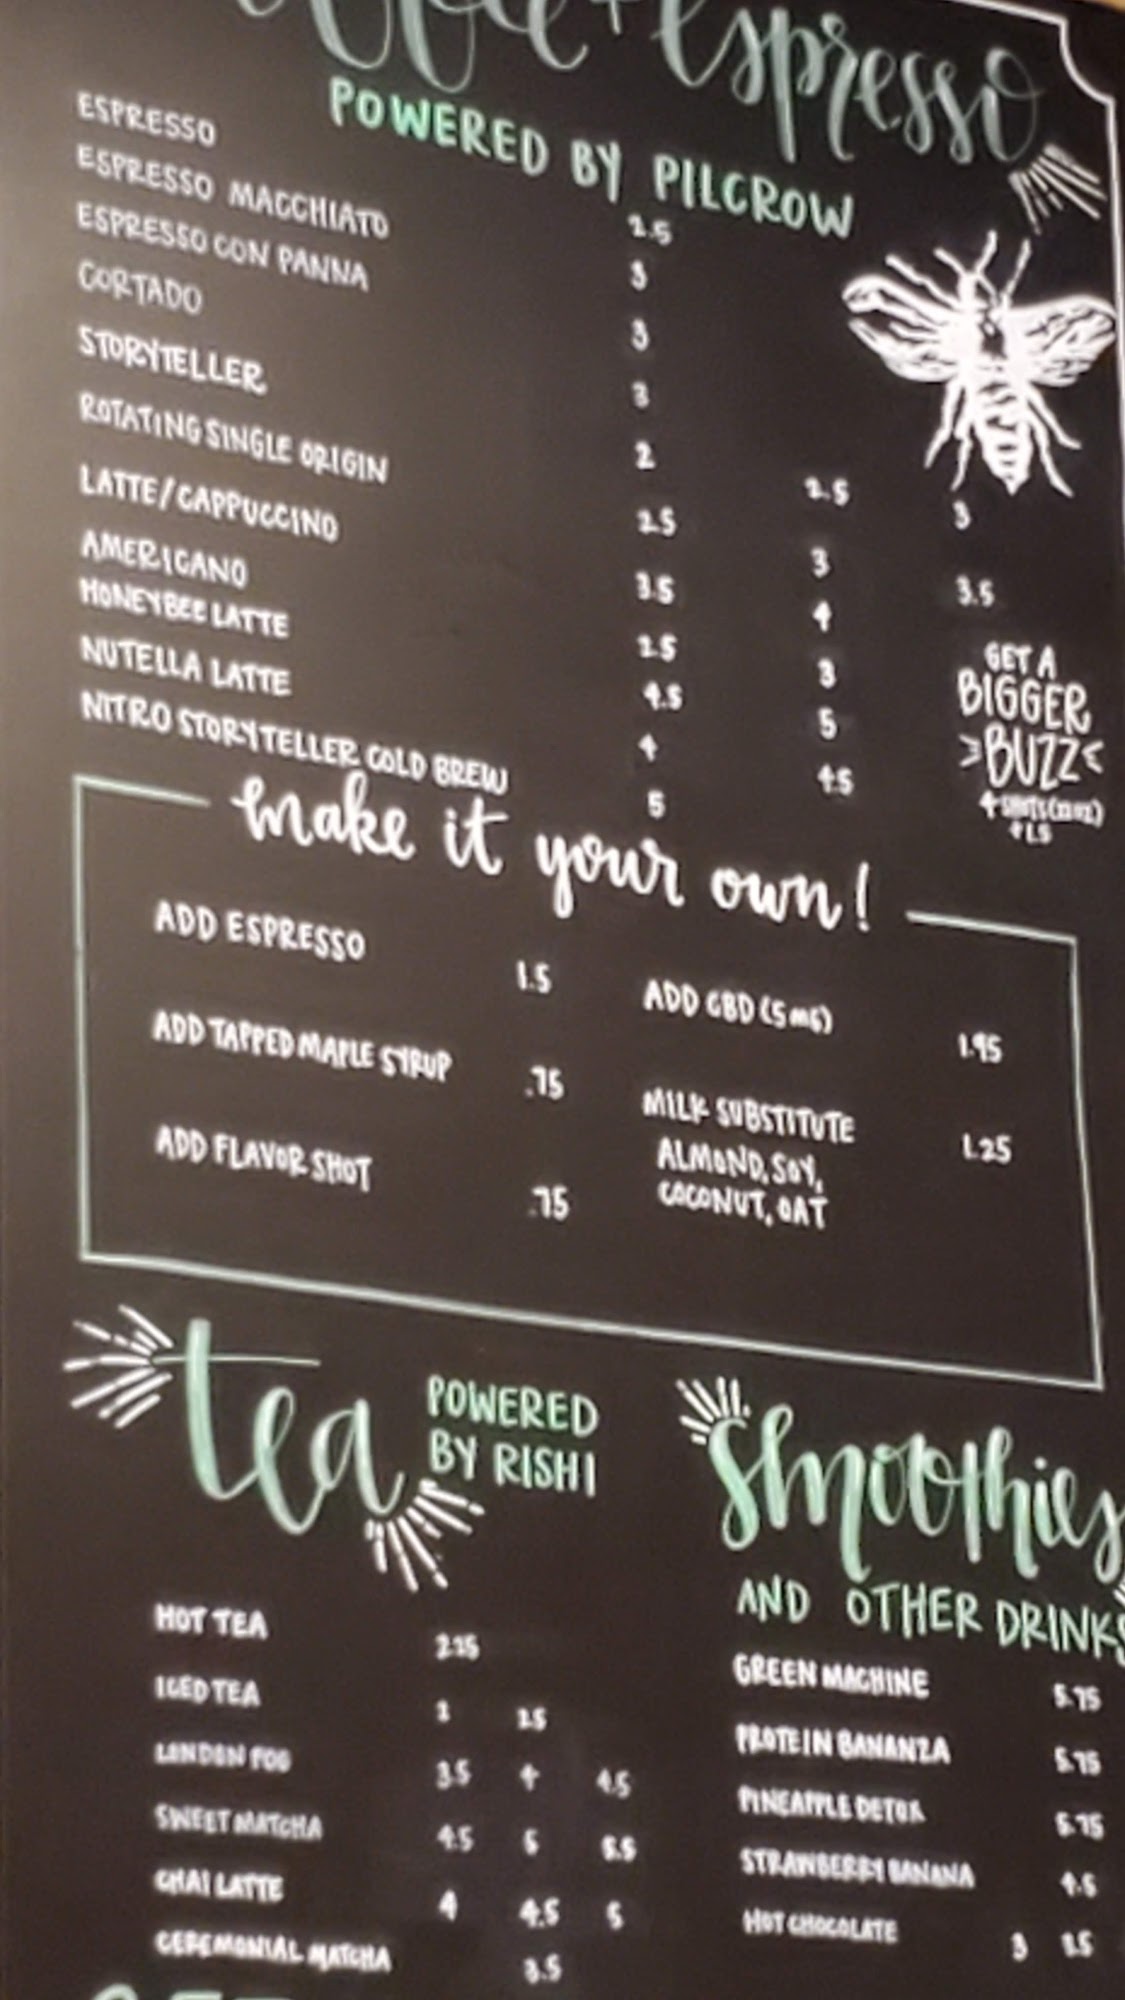 + espresso
POWERED BY PILCROW
ESPRESSO 2.5
ESPRESSO MACCHIATO 3
ESPRESSO CON PANNA 3
CORTADO 3
STORYTELLER 2 2.5 3
ROTATING SINGLE ORIGIN 2.5 3 3.5
LATTE/CAPPUCCINO 3.5 4
AMERICANO 2.5 3
HONEYBEE LATTE 4.5 5
NUTELLA LATTE 4 4.5
NITRO STORYTELLER COLD BREW 5
GET A
BIGGER
BUZZ
make it your own!
ADD ESPRESSO 1.5
ADD CBD (5MG) 1.95
ADD TAPPED MAPLE SYRUP .75
MILK SUBSTITUTE 1.25
ALMOND, SOY,
COCONUT, OAT
ADD FLAVOR SHOT .75
tea
POWERED
BY RISHI
HOT TEA
ICED TEA
LONDON FOG 3.5 4 4.5
SWEET MATCHA 4.5 5 5.5
CHAI LATTE 4 4.5 5
CEREMONIAL MATCHA 3.5
smoothies
AND OTHER DRINKS
GREEN MACHINE 5.75
PROTEIN BANANZA 5.75
PINEAPPLE DETOX 5.75
STRAWBERRY BANANA
HOT CHOCOLATE 3